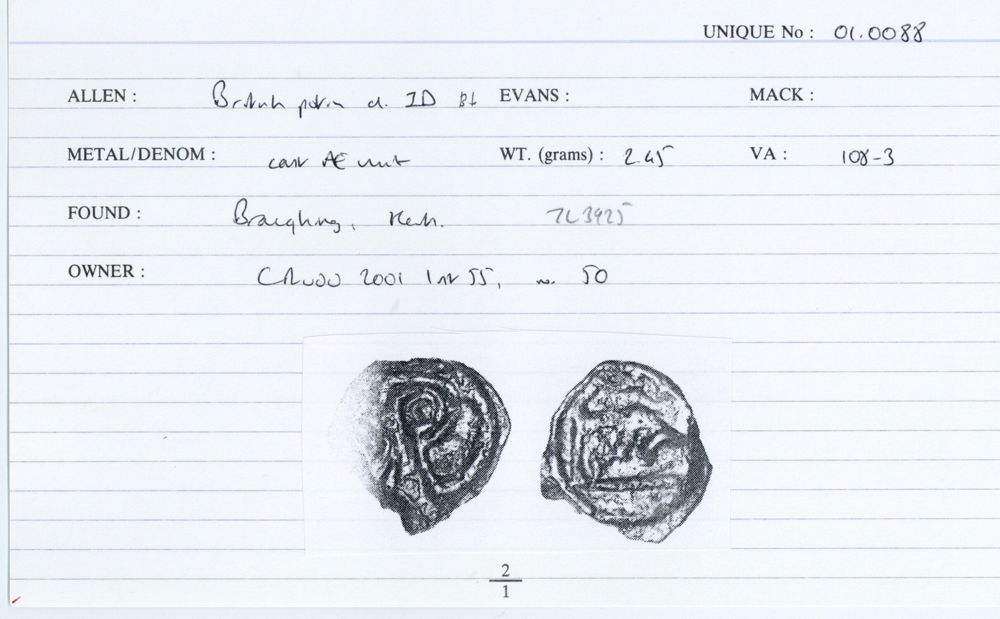 UNIQUE No : 01.0088
ALLEN : British potin cl. ID EVANS : MACK :
METAL/DENOM : cast Æ unit WT. (grams) : 2.45 VA : 108-3
FOUND : Braughing, Herts. TL3925
OWNER : CR 2001 List 55, no. 50
2
1